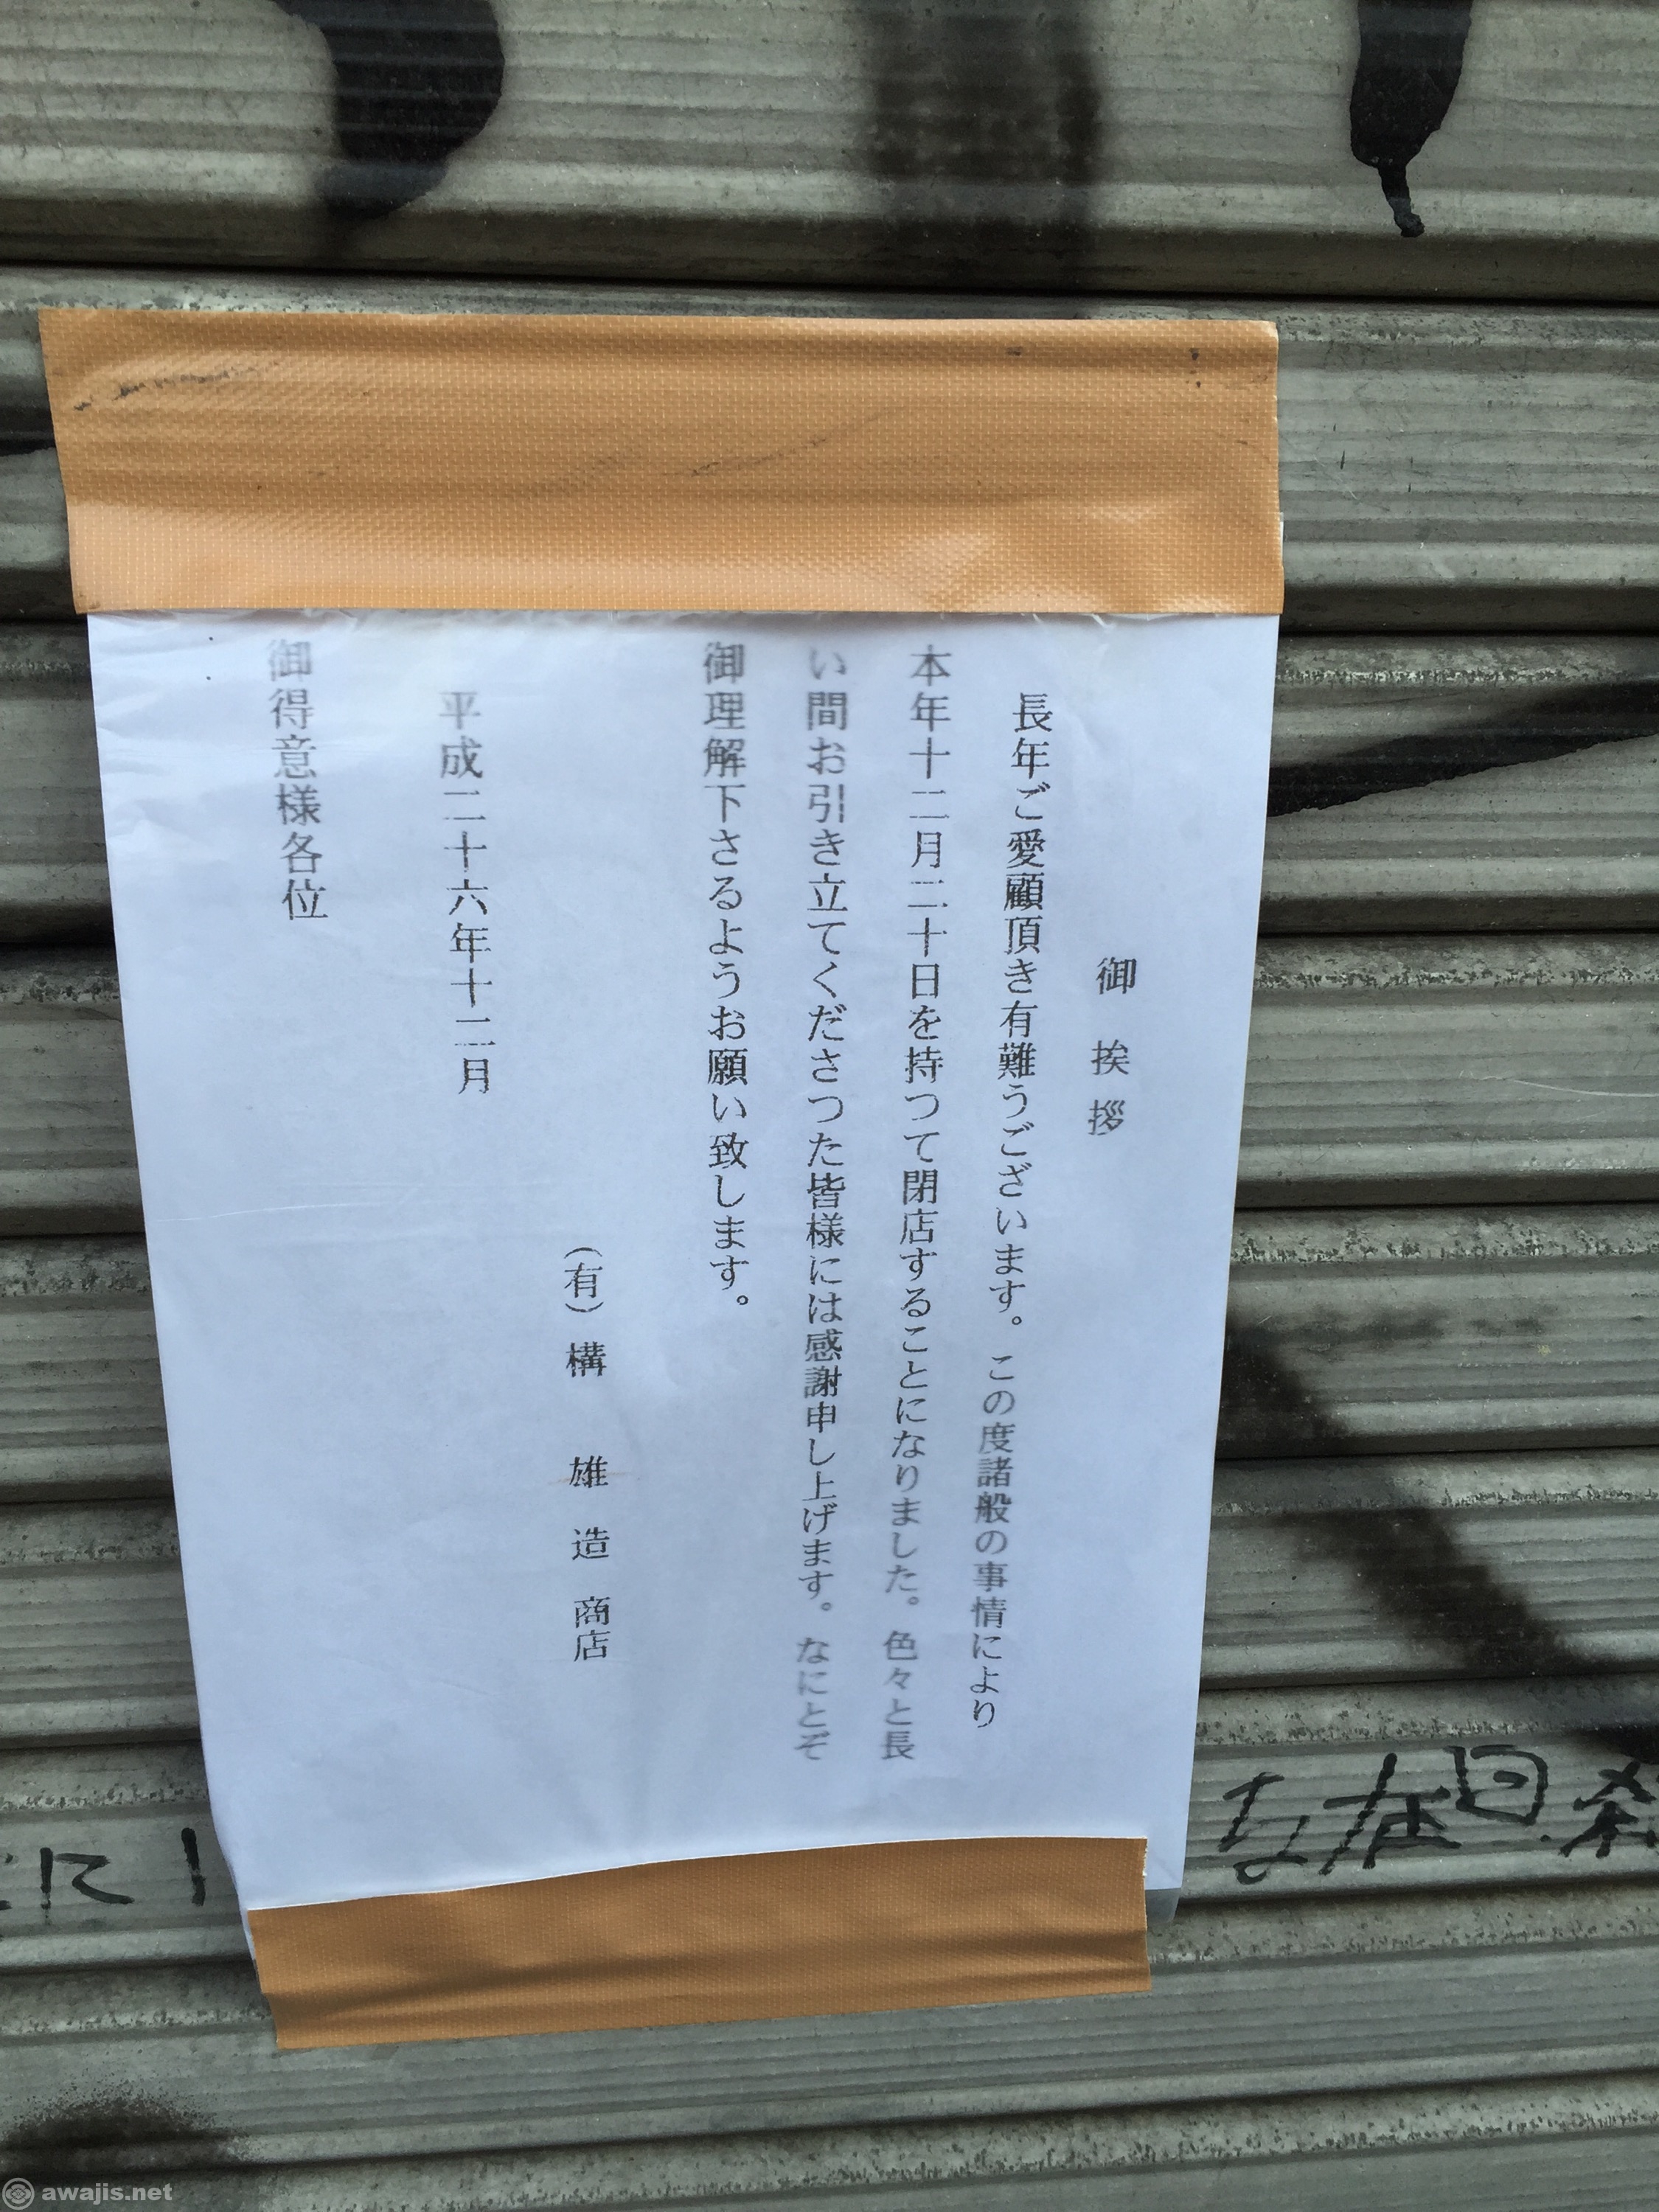 御挨拶
長年ご愛顧頂き有難うございます。この度諸般の事情により
本年十二月二十日を持つて閉店することになりました。色々と長
い間お引き立てくださつた皆様には感謝申し上げます。なにとぞ
御理解下さるようお願い致します。
(有)構 雄造 商店
平成二十六年十二月
御得意様各位
awajis.net